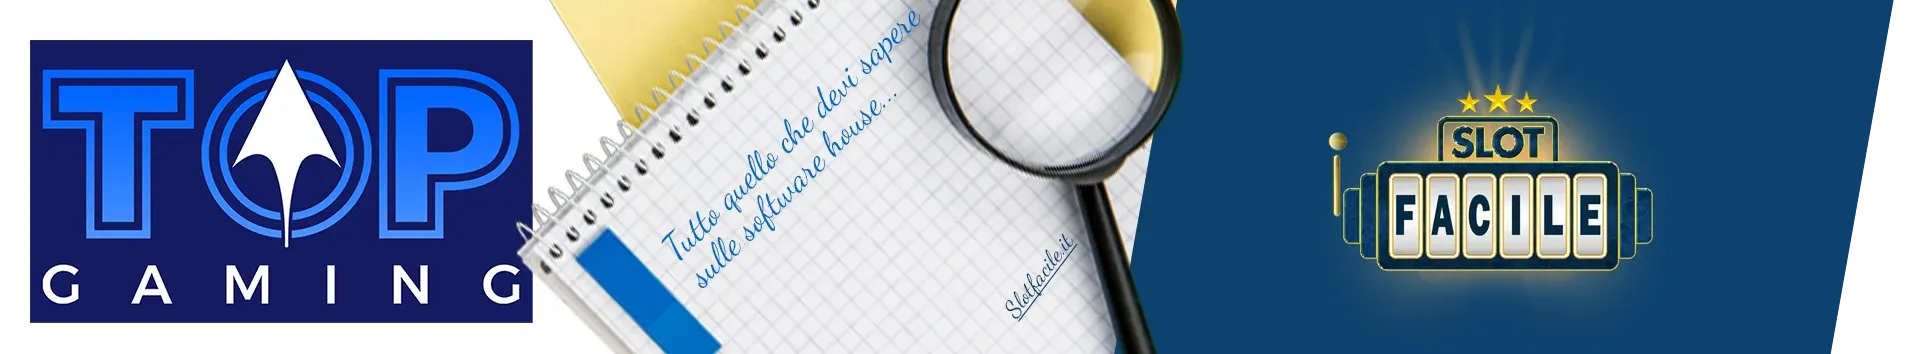 TOP
GAMING
Tutto quello che devi sapere
sulle software house...
Slotfacile.it
SLOT
FACILE